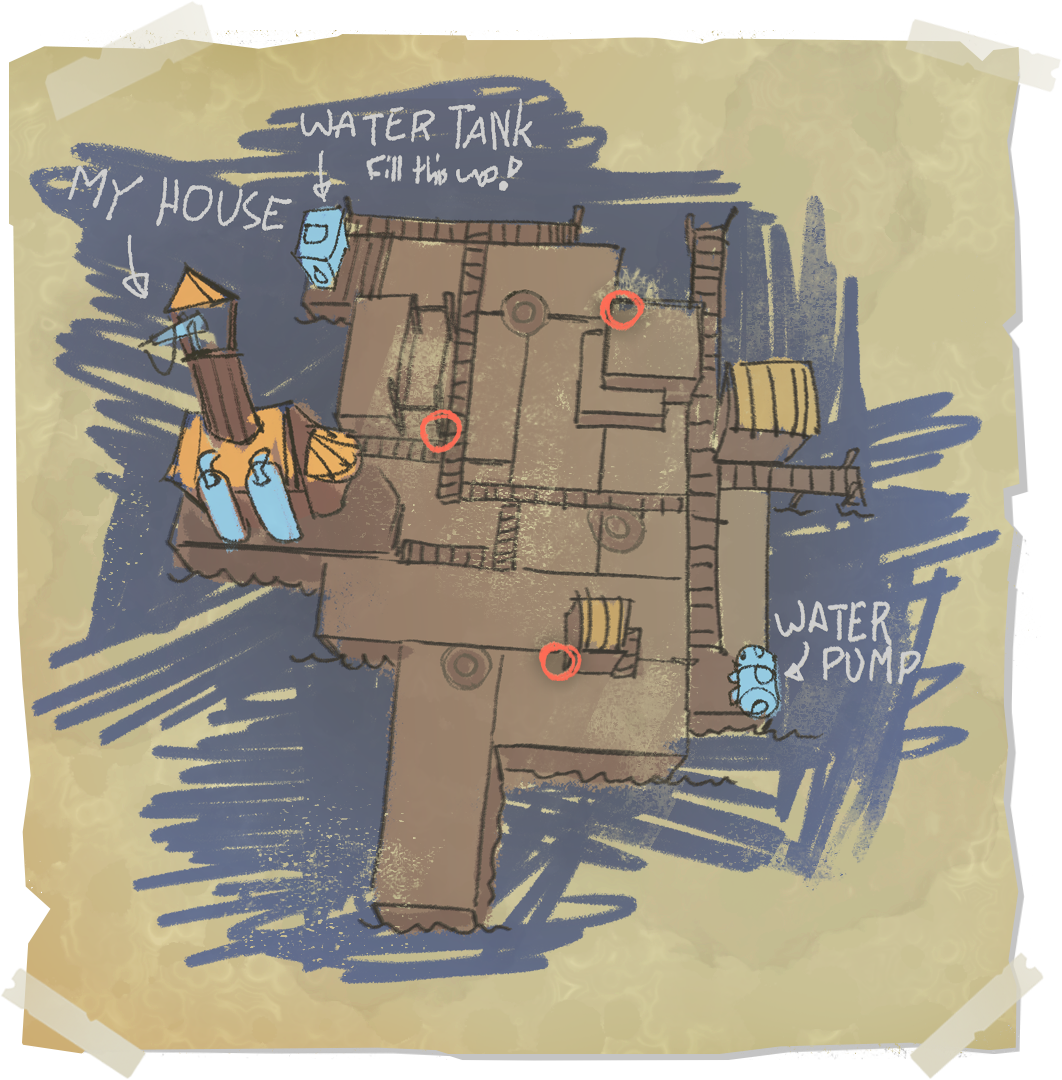 WATER TANK
Fill this up!
MY HOUSE
WATER
PUMP